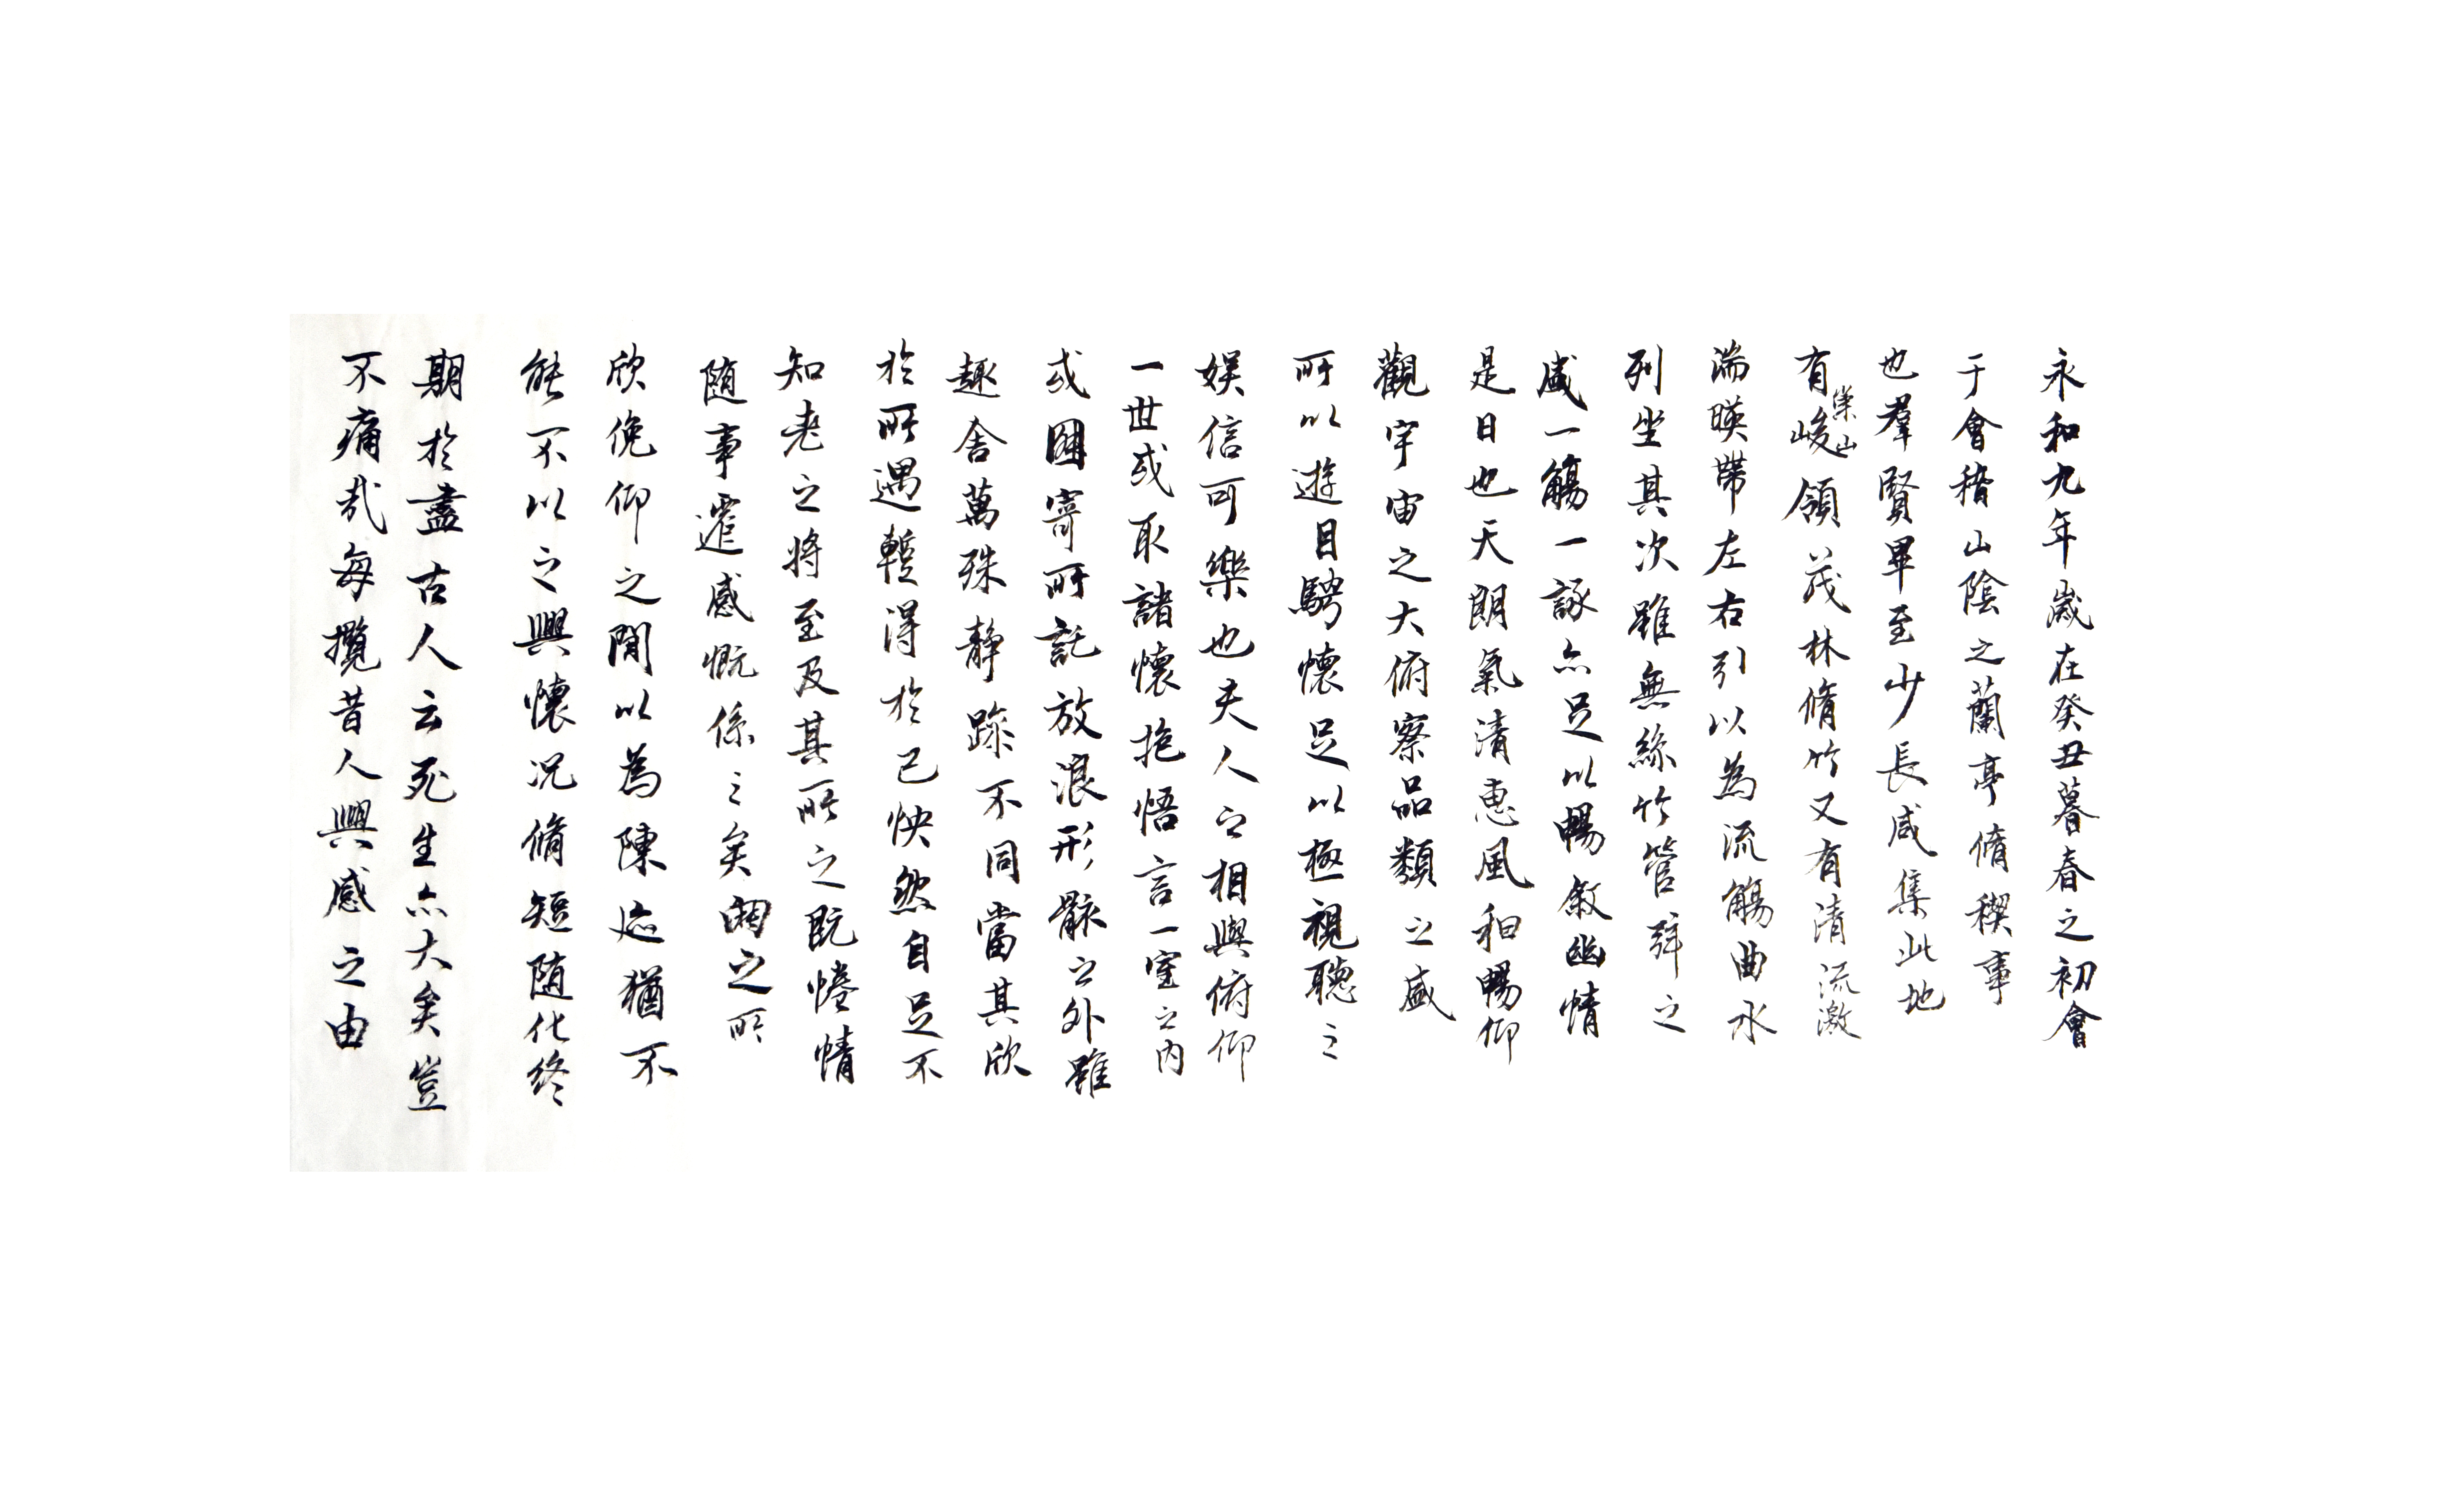 永和九年歲在癸丑暮春之初會
于會稽山陰之蘭亭脩稧事
也羣賢畢至少長咸集此地
有崇山峻領茂林脩竹又有清流激
湍暎帶左右引以為流觴曲水
列坐其次雖無絲竹管弦之
盛一觴一詠亦足以暢敘幽情
是日也天朗氣清惠風和暢仰
觀宇宙之大俯察品類之盛
所以遊目騁懷足以極視聽之
娛信可樂也夫人之相與俯仰
一世或取諸懷抱悟言一室之內
或因寄所託放浪形骸之外雖
趣舍萬殊靜躁不同當其欣
於所遇暫得於己怏然自足不
知老之將至及其所之既惓情
隨事遷感慨係之矣向之所
欣俛仰之間以為陳迹猶不
能不以之興懷況脩短隨化終
期於盡古人云死生亦大矣豈
不痛哉每攬昔人興感之由